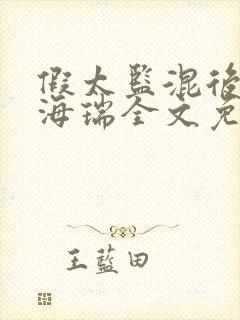 假太监混后
海瑞全文免
王藍田